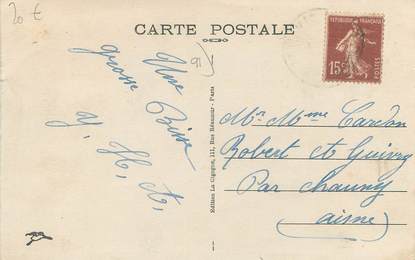 20 €
CARTE POSTALE
REPUBLIQUE FRANÇAISE
15c
POSTES
91
Une
grosse Bise
Y. H. A.
Edition La Cigogne, 111, Rue Réaumur - Paris
Mr. Mme Cardon
Robert et Guivry
Par Chauny
(aisne)